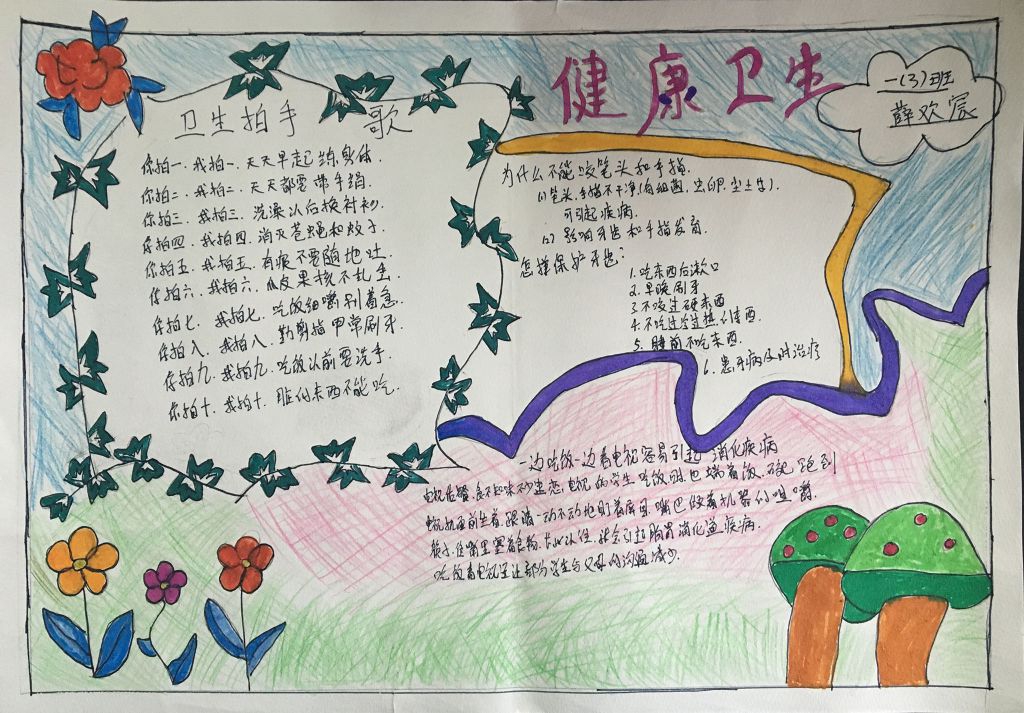 健康卫生
一(3)班
薛欢宸
卫生拍手歌
你拍一.我拍一.天天早起练身体.
你拍二.我拍二.天天都要带手绢.
你拍三.我拍三.洗澡以后换衬衫.
你拍四.我拍四.消灭苍蝇和蚊子.
你拍五.我拍五.有痰不要随地吐.
你拍六.我拍六.瓜皮果核不乱丢.
你拍七.我拍七.吃饭细嚼别着急.
你拍八.我拍八.勤剪指甲常刷牙.
你拍九.我拍九.吃饭以前要洗手.
你拍十.我拍十.脏的东西不能吃.
为什么不能咬笔头和手指.
(1)笔头.手指不干净(有细菌.虫卵.尘土等).
可引起疾病.
(2)影响牙齿和手指发育.
怎样保护牙齿:
1.吃东西后漱口
2.早晚刷牙
3.不咬过硬东西
4.不吃过冷过热的东西.
5.睡前不吃东西.
6.患牙病及时治疗
一边吃饭一边看电视容易引起消化疾病
迷恋电视的学生.吃饭时.也端着饭.碗跑到
电视机面前坐着.眼睛一动不动地盯着屏幕.嘴巴做着机器的咀嚼.
筷子往嘴里塞着食物.长此以往.就会引起肠胃消化道疾病.
吃饭看电视还让部分学生与父母的沟通减少.